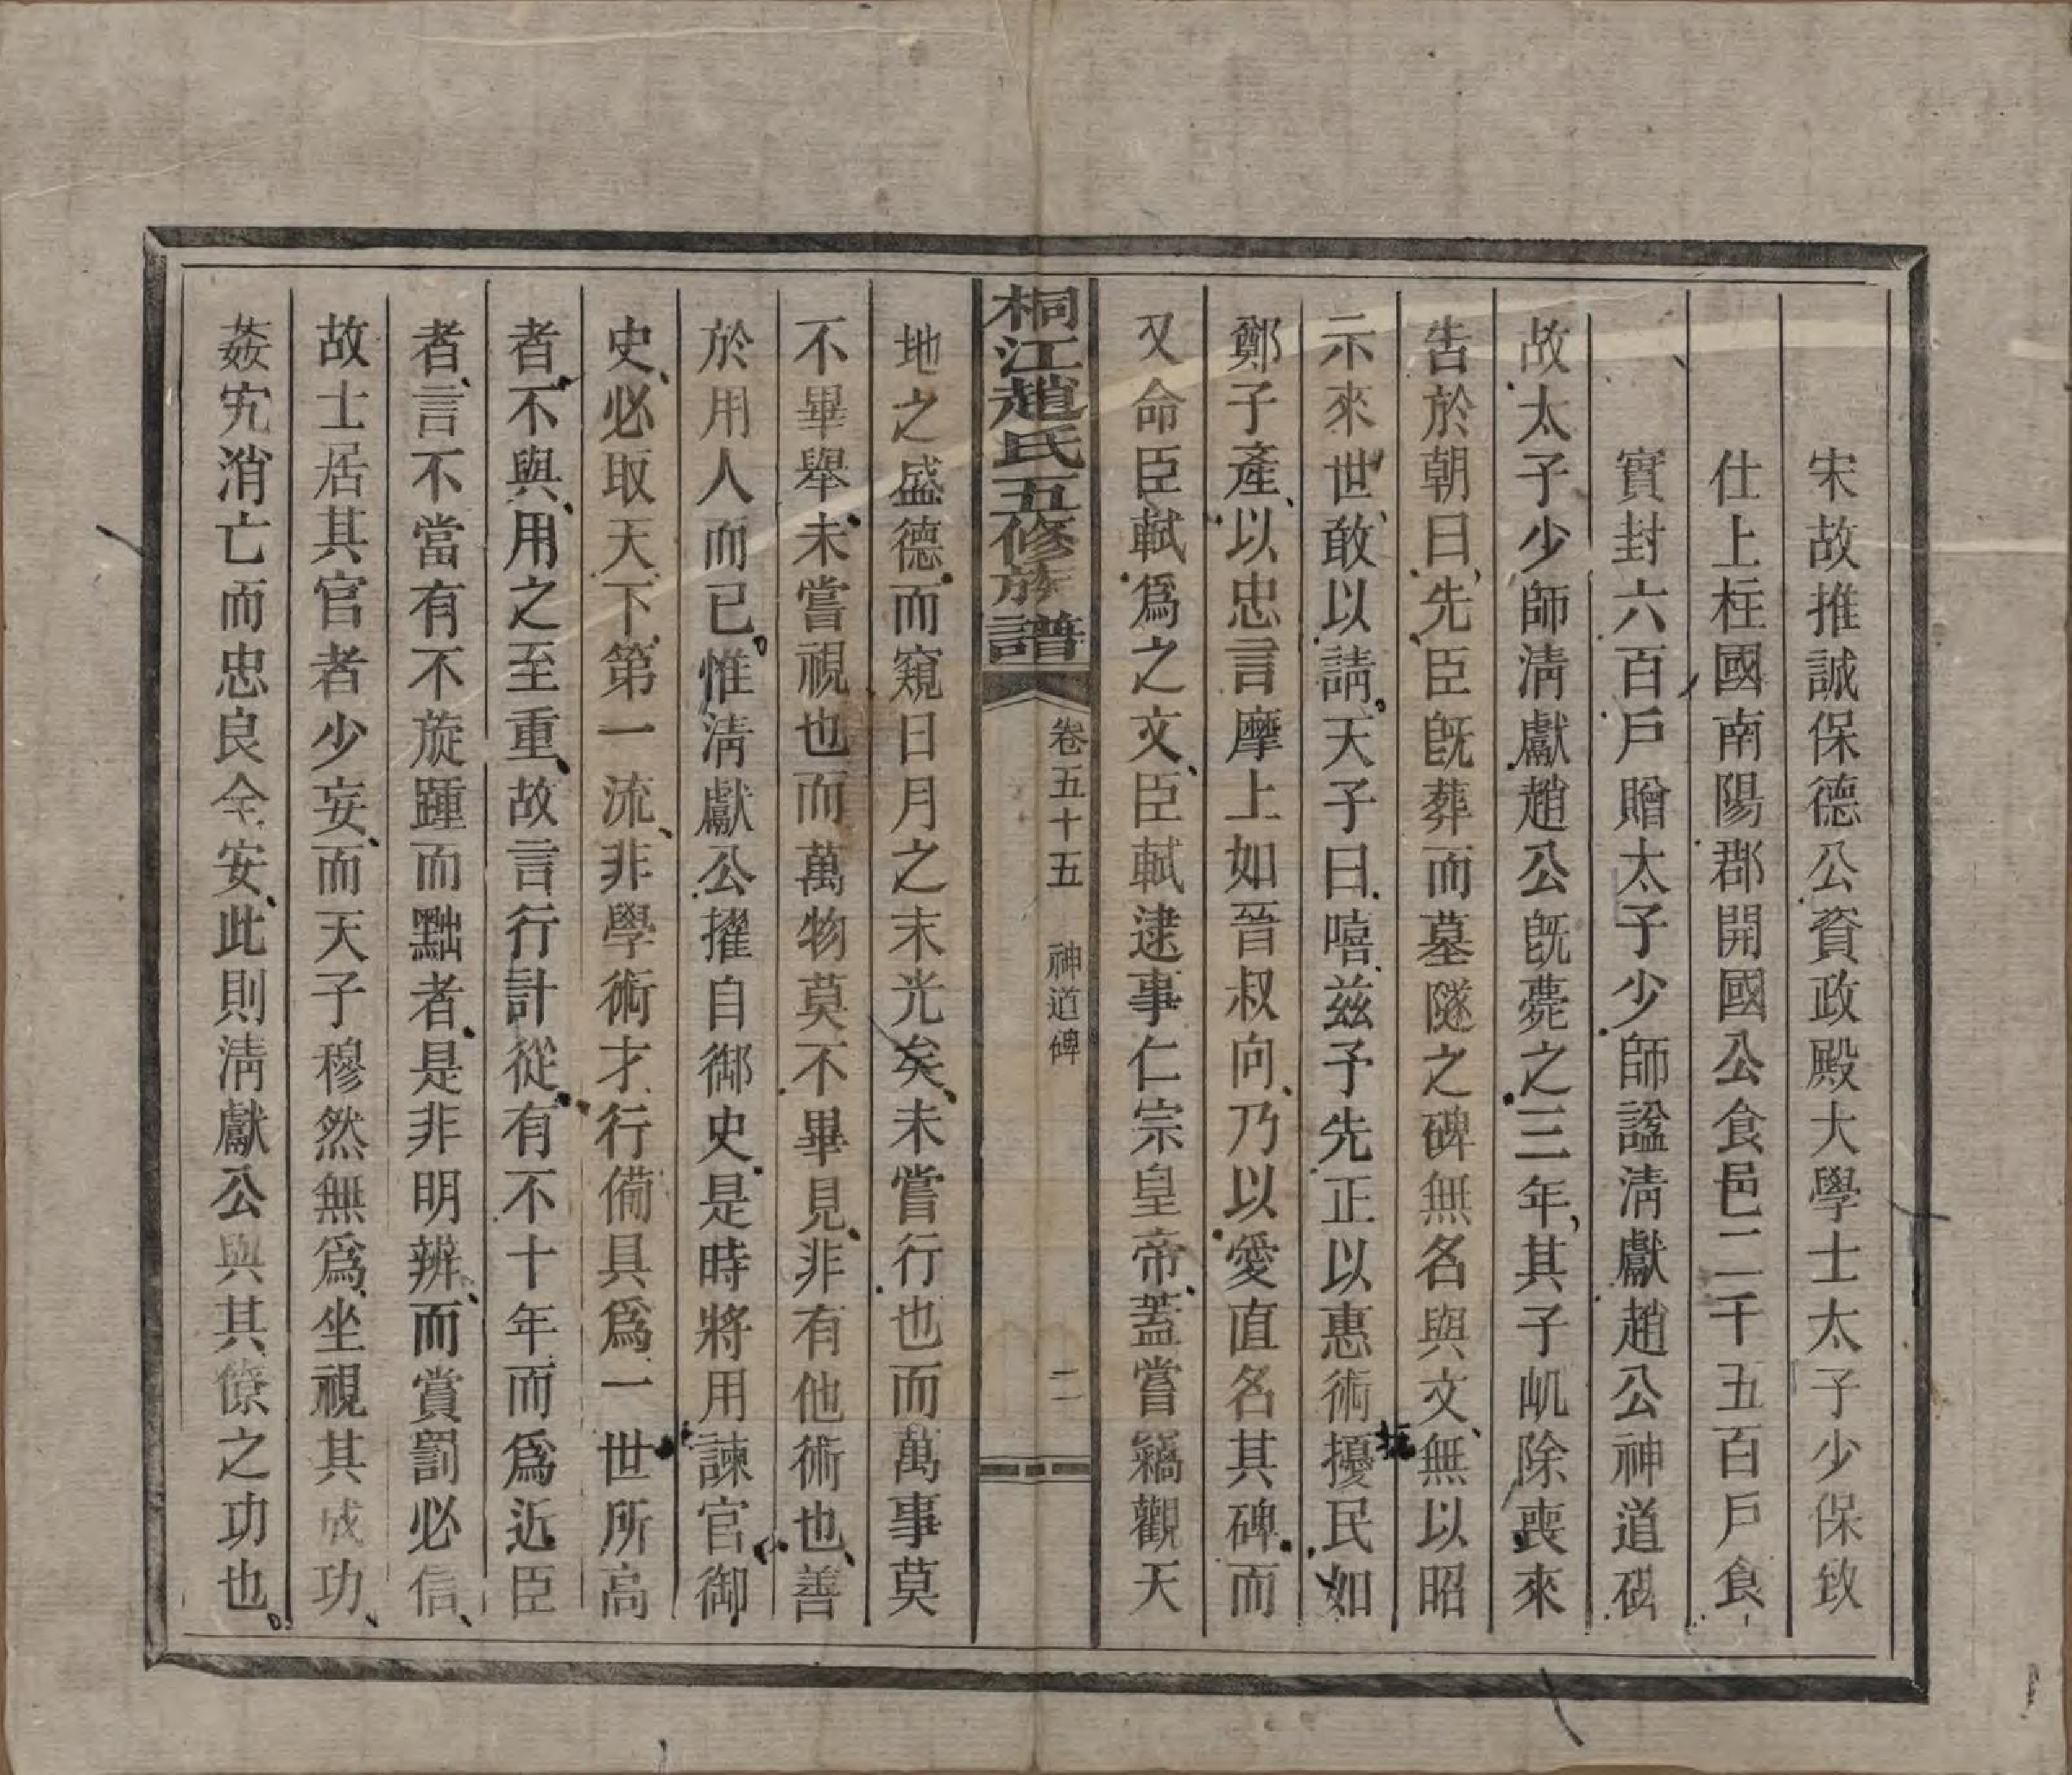 宋故推誠保德公資政殿大學士太子少保致
仕上柱國南陽郡開國公食邑二千五百戶食
實封六百戶贈太子少師諡淸獻趙公神道碑
故太子少師淸獻趙公旣薨之三年其子㞦除喪來
告於朝曰先臣旣葬而墓隧之碑無名與文無以昭
示來世敢以請天子曰嘻茲予先正以惠術擾民如
鄭子產以忠言摩上如晉叔向乃以愛直名其碑而
又命臣軾爲之文臣軾逮事仁宗皇帝蓋嘗竊觀天
桐江趙氏五修族譜
卷五十五 神道碑
二
地之盛德而窺日月之末光矣未嘗行也而萬事莫
不畢舉未嘗視也而萬物莫不畢見非有他術也善
於用人而已惟淸獻公擢自御史是時將用諫官御
史必取天下第一流非學術才行備具爲一世所高
者不與用之至重故言行計從有不十年而爲近臣
者言不當有不旋踵而黜者是非明辨而賞罰必信
故士居其官者少妄而天子穆然無爲坐視其成功
姦宄消亡而忠良全安此則淸獻公與其僚之功也